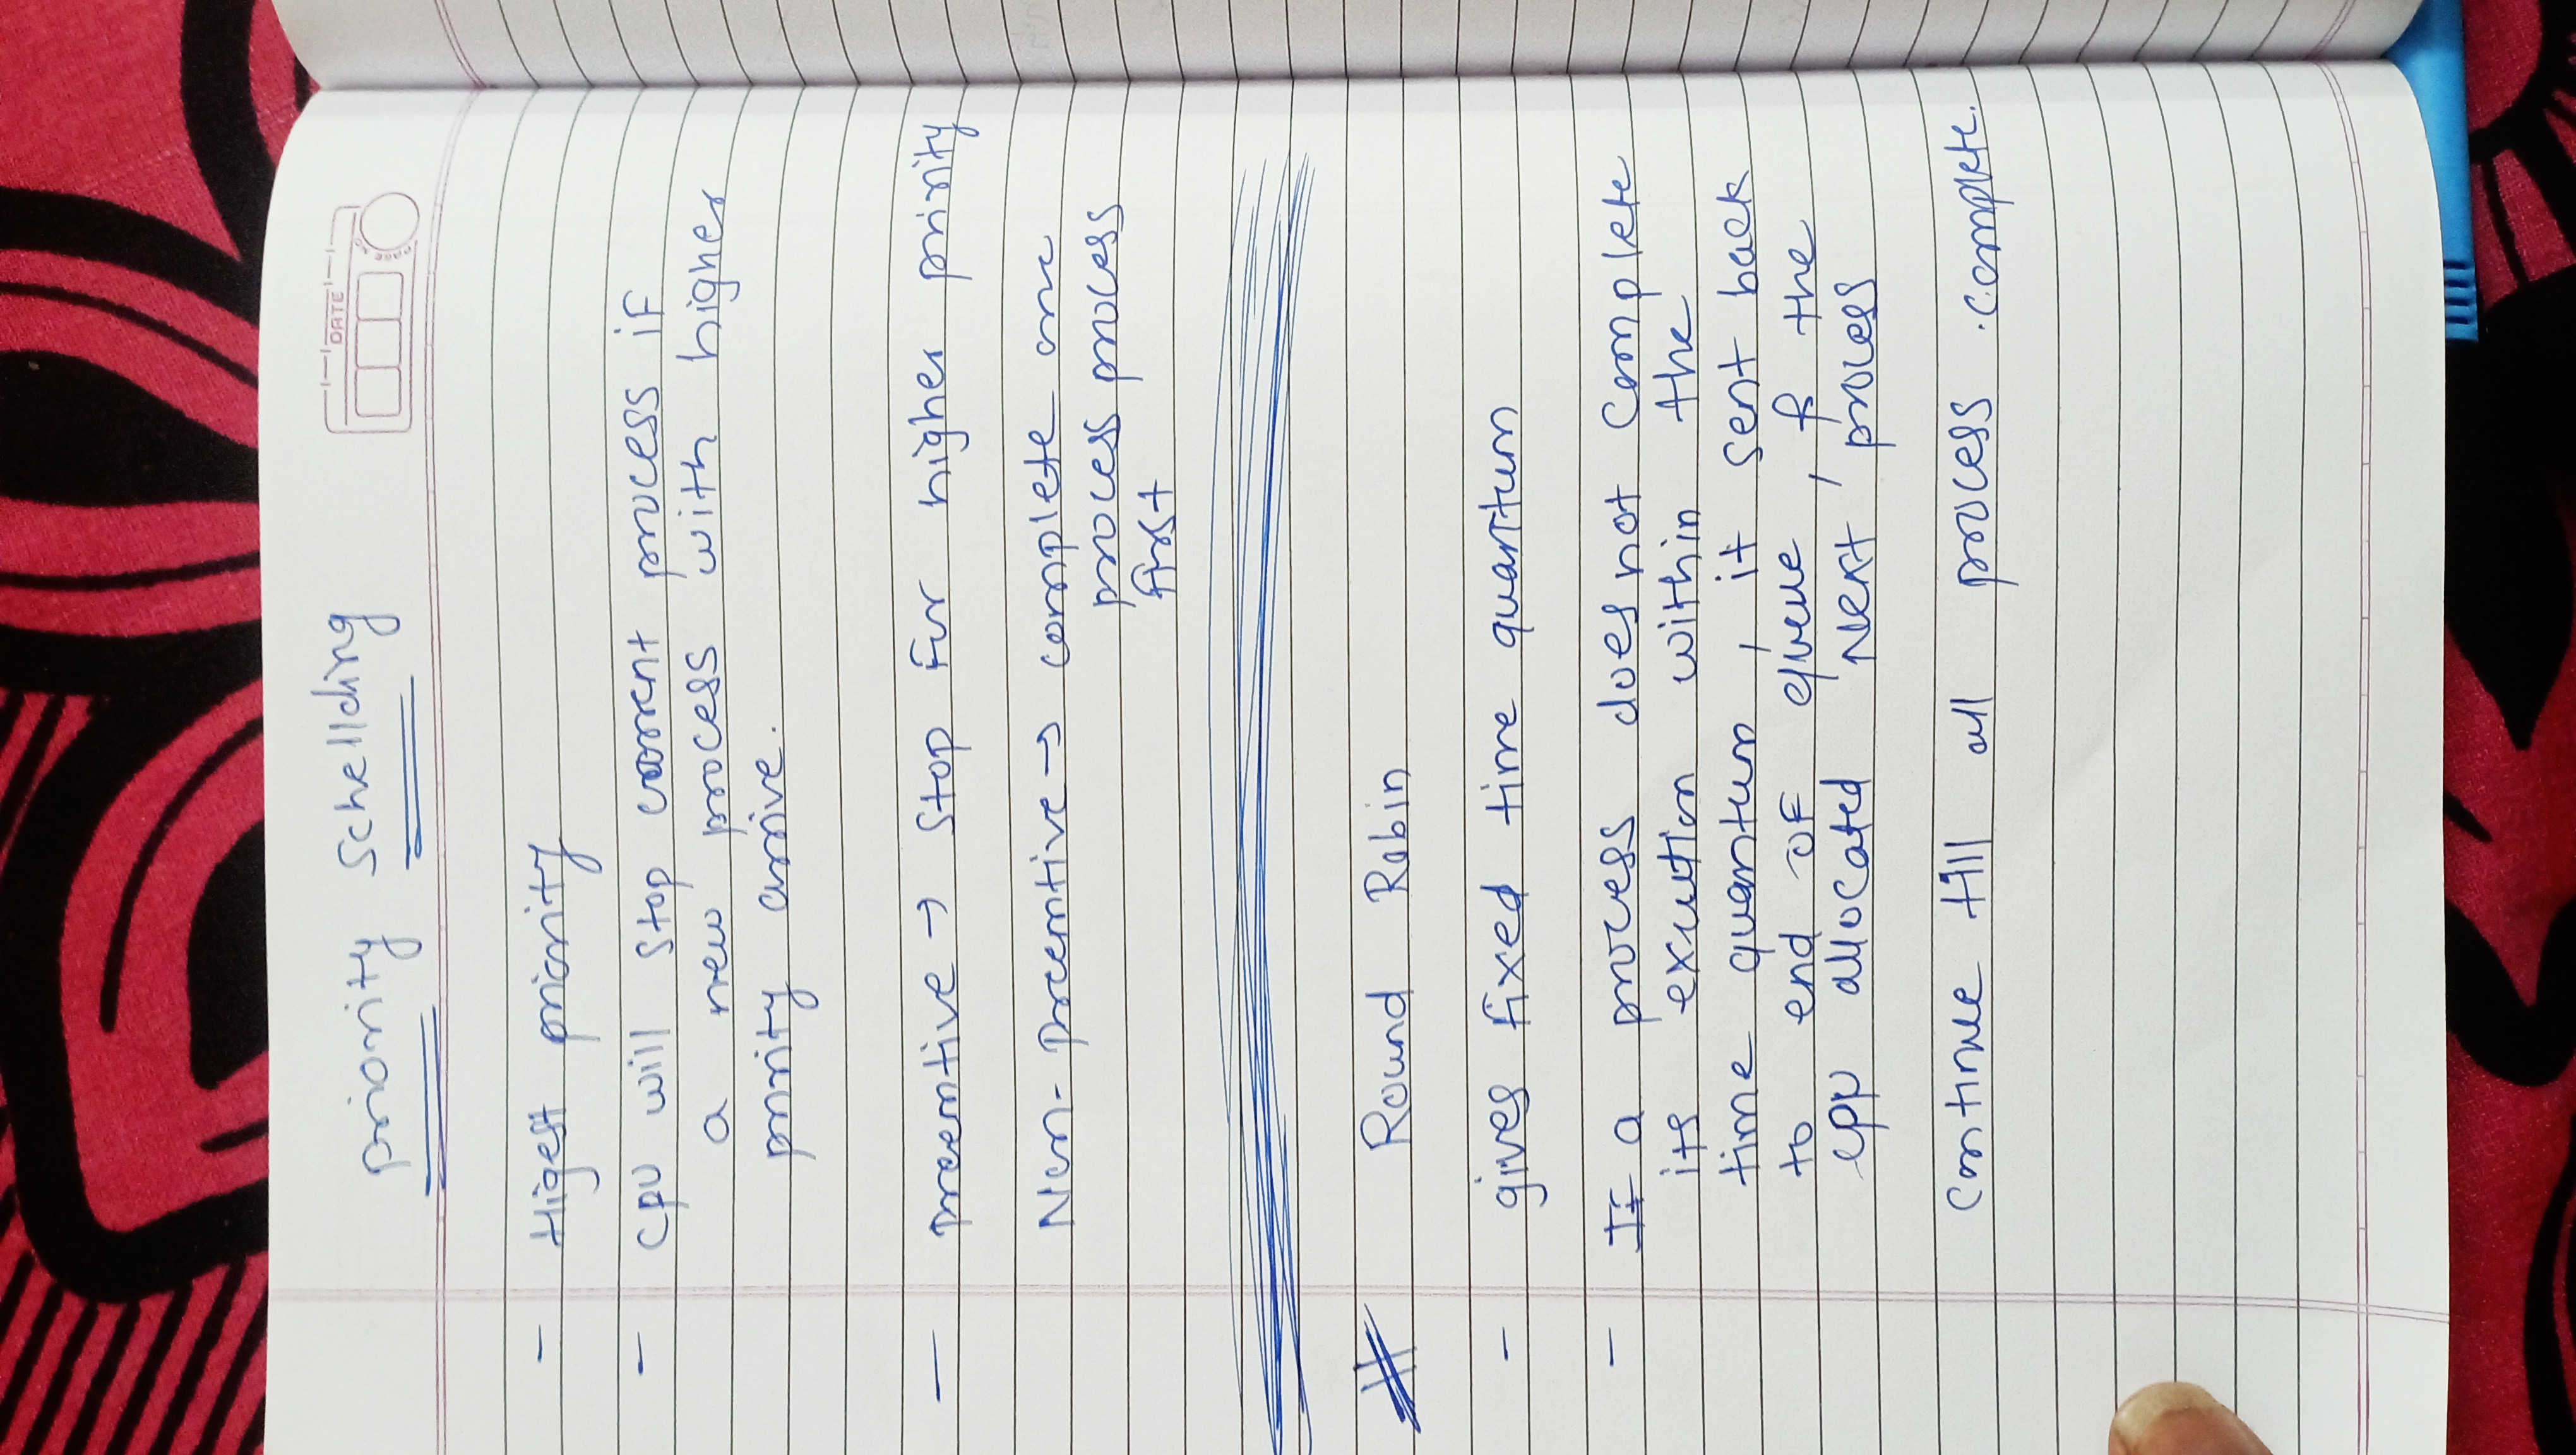 priority Schellding
DATE
- Higest priority
- CPU will stop current process if
a new process with higher
pririty arrive.
- preemtive → stop for higher pririty
Non-preemtive → complete one
process process
first
# Round Robin
- gives fixed time quantum
- If a process does not complete
its exicution within the
time quantum, it sent back
to end of queue, & the
cpu allocated Next process
Continue till all process complete.